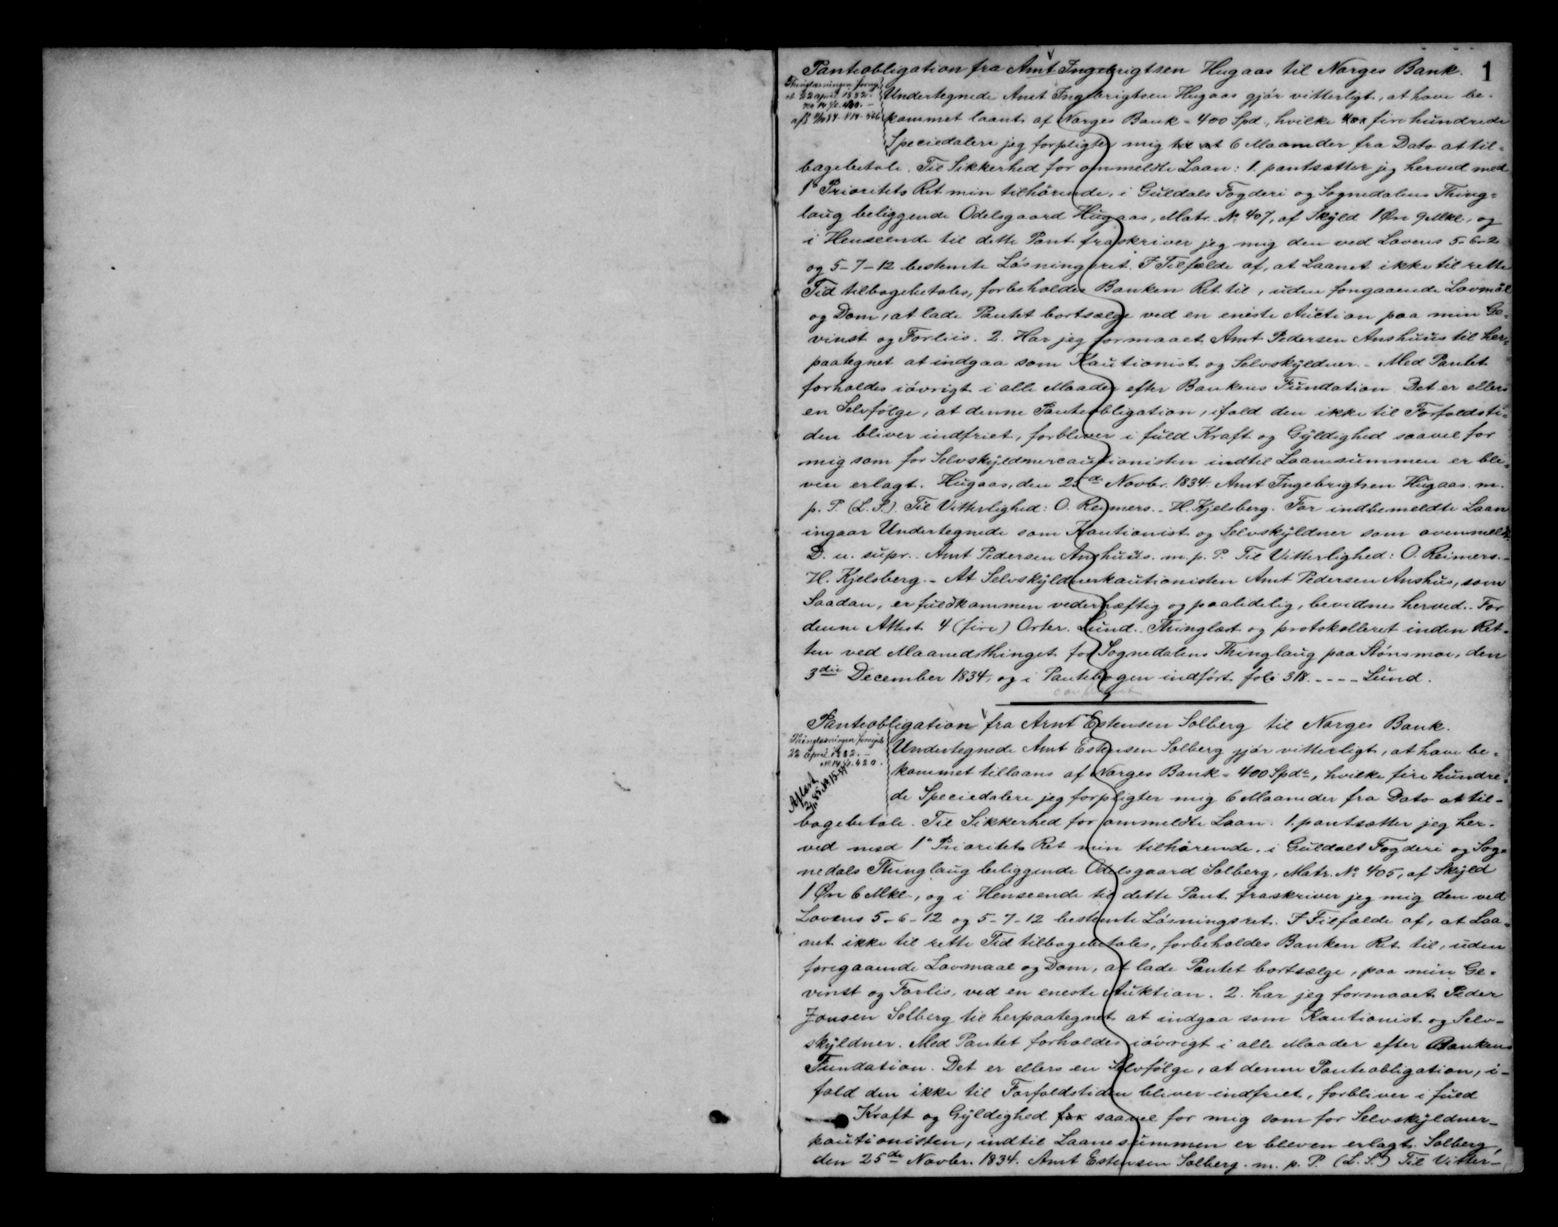 1
Panteobligation fra Arnt Ingebrigtsen Hugaas til Norges Bank.
Thinglæsningen fornyet
22 April 1882.
Undertegnede Arnt Ingebrigtsen Hugaas gjör vitterligt, at have be-
kommet laant af Norges Bank - 400 Spd, hvilke fire hundrede
Speciedalere jeg forpligter mig 6 Maaneder fra Dato at til-
bagebetale. Til Sikkerhed for ommeldte Laan: 1. pantsætter jeg herved med
1ste Prioritets Ret min tilhörende, i Guldals Fogderi og Sognedalens Thing-
laug beliggende Odelsgaard Hugaas, Matr. No 407, af Skyld 1 Øre 9 Mkl, og
i Henseende til dette Pant fraskriver jeg mig den ved Lovens 5-6-2
og 5-7-12 bestemte Lösningsret. I Tilfælde af, at Laanet ikke til rette
Tid tilbagebetales, forbeholdes Banken Ret til, uden forgaaende Lovmål
og Dom, at lade Pantet bortsælge ved en eneste Auction paa min Ge-
vinst og Forliis. 2. Har jeg formaaet Arnt Pedersen Anshuus til her-
paategnet at indgaa som Kautionist og Selvskyldner. - Med Pantet
forholdes iövrigt i alle Maader efter Bankens Fundation. Det er ellers
en Selvfölge, at denne Panteobligation, ifald den ikke til Forfaldsti-
den bliver indfriet, forbliver i fuld Kraft og Gyldighed saavel for
mig som for Selvskyldnercautionisten indtil Laanesummen er ble-
ven erlagt. Hugaas, den 25de Novbr. 1834. Arnt Ingebrigtsen Hugaas. m.
p. P. (L. S.) Til Vitterlighed: O. Reimers. - H. Kjelsberg. For indbemeldte Laan
ingaar Undertegnede som Kautionist og Selvskyldner som ovenmeldt
D. u. supr. Arnt Pedersen Anshuus. m. p. P. Til Vitterlighed: O. Reimers. -
H. Kjelsberg. - At Selvskyldnerkautionisten Arnt Pedersen Anshus, som
Saadan, er fuldkommen vederhæftig og paalidelig, bevidnes herved. - For
denne Attest 4 (fire) Orter. Lund. Thinglæst og protokolleret inden Ret-
ten ved Maanedsthinget for Sognedalens Thinglaug paa Störsmoe, den
3die December 1834, og i Pantebogen indfört folio 318. - - - - Lund.
Panteobligation fra Arnt Estensen Solberg til Norges Bank.
Thinglæsningen fornyet
22 April 1882. -
Aflæst
Undertegnede Arnt Estensen Solberg gjör vitterligt, at have be-
kommet tillaans af Norges Bank - 400 Spd, hvilke fire hundre-
de Speciedalere jeg forpligter mig 6 Maaneder fra Dato at til-
bagebetale. Til Sikkerhed for ommeldte Laan. 1. pantsætter jeg her-
ved med 1ste Prioritets Ret min tilhörende, i Guldals Fogderi og Sog-
nedals Thinglaug beliggende Odelsgaard Solberg, Matr. No 405, af Skyld
1 Øre 6 Mkl, og i Henseende til dette Pant fraskriver jeg mig den ved
Lovens 5-6-12 og 5-7-12 bestemte Lösningsret. I Tilfælde af, at Laa-
net ikke til rette Tid tilbagebetales, forbeholdes Banken Ret til, uden
foregaaende Lovmaal og Dom, at lade Pantet bortsælge, paa min Ge-
vinst og Forlis, ved en eneste Auktion. 2. har jeg formaaet Peder
Jonsen Solberg til herpaategnet at indgaa som Kautionist og Selv-
skyldner. Med Pantet forholdes iövrigt i alle Maader efter Bankens
Fundation. Det er ellers en Selvfölge, at denne Panteobligation, i-
fald den ikke til Forfaldstiden bliver indfriet, forbliver i fuld
Kraft og Gyldighed for saavel for mig som for Selvskyldner-
kautionisten, indtil Laanesummen er bleven erlagt. Solberg,
den 25de Novbr. 1834. Arnt Estensen Solberg. m. p. P. (L. S.) Til Vitter-